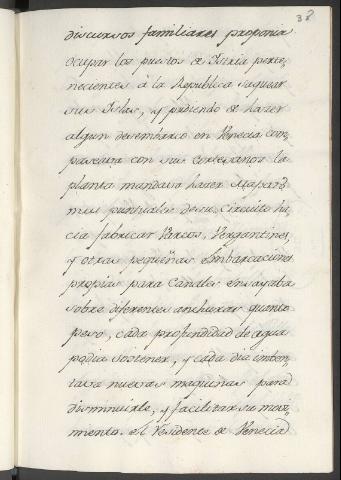 38
discursos familiares proponia
ocupar los puestos de Istria perte
necientes à la Republica saquear
sus Islas, y pudiendo de hazer
algun desembarco en Venecia con
paseava con sus cortesanos la
planta mandava hazer Mapas
mui puntuales de su circuito ha
cia fabricar Varcos, Vergantines,
y otras pequeñas embarcaciones
propias para Canales ensayaba
sobre diferentes anchuras quanto
peso, cada profundidad de agua
podia sostener, y cada dia inten
tava nuevas maquinas para
disminuirle, y facilitar su movi
miento. el Residente de Venecia